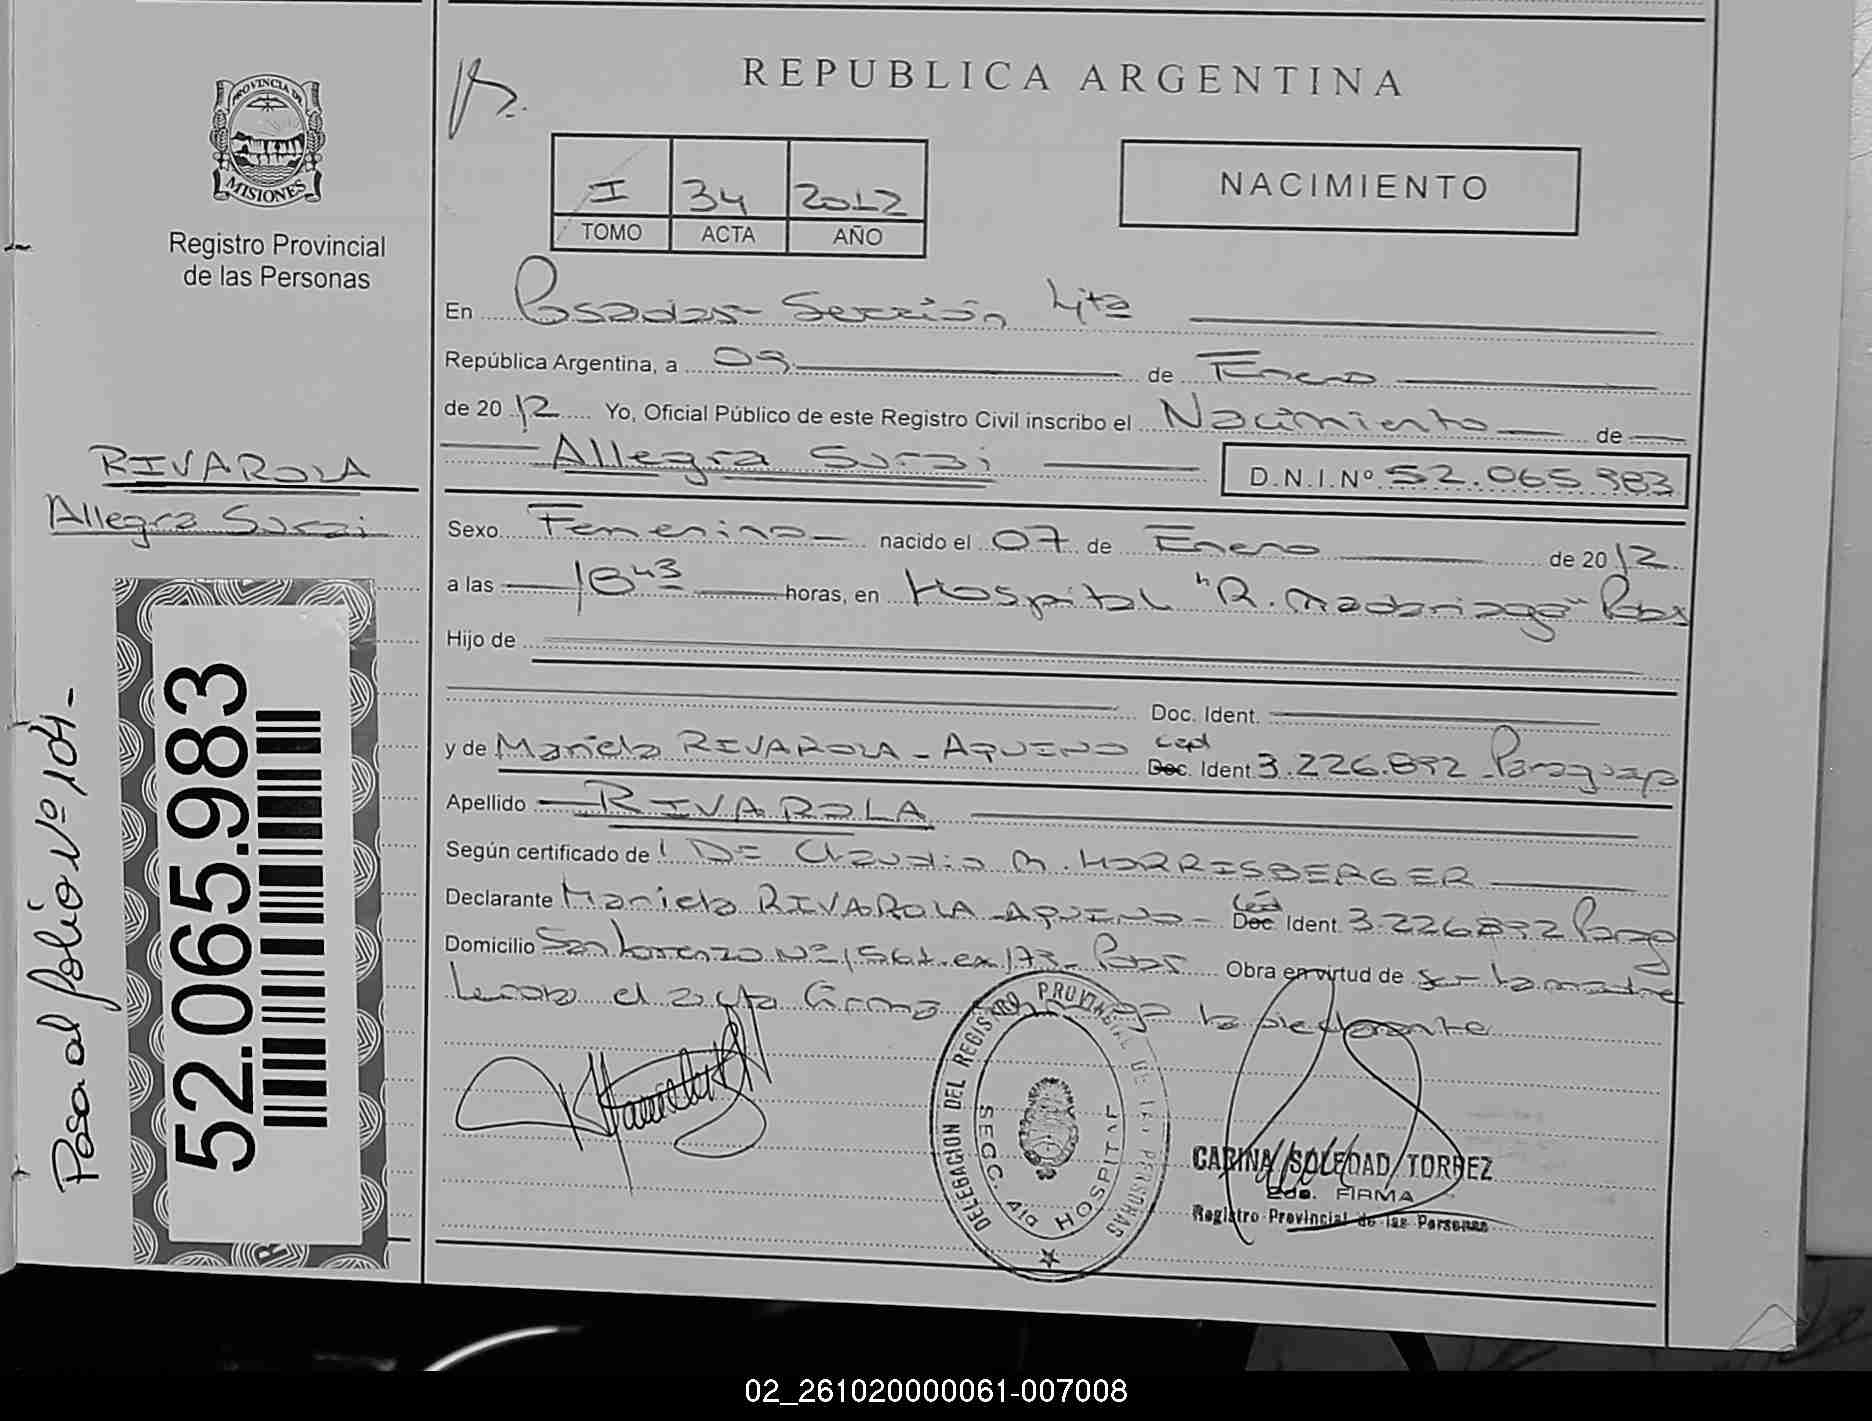 REPUBLICA ARGENTINA
PROVINCIA DE
MISIONES
Registro Provincial
de las Personas
I 34 2012
TOMO ACTA AÑO
NACIMIENTO
En Posadas - Sección 4ta
República Argentina, a 09 de Enero
de 2012 Yo, Oficial Público de este Registro Civil inscribo el Nacimiento de
Allegra D.N.I.Nº 52.065.983
RIVAROLA
Allegra
Sexo Femenino nacido el 07 de Enero de 2012
a las 1843 horas, en Hospital "R. Madariaga" Pdas
Hijo de
Doc. Ident.
y de Mariela RIVAROLA - AQUINO Doc. Ident. 3.226.892 Paraguay
Apellido RIVAROLA
Según certificado de Claudia M. HARRISBERGER
Declarante Mariela RIVAROLA - AQUINO - Doc. Ident. 3.226.892
Domicilio San Lorenzo Nº Pdas Obra en virtud de ser la madre
el acta firma la declarante
52.065.983
Pasa al folio Nº 104-
DELEGACION DEL REGISTRO PROVINCIAL DE LAS PERSONAS
SECC. 4ta HOSPITAL
CARINA SOLEDAD TORREZ
2da. FIRMA
Registro Provincial de las Personas
02_261020000061-007008